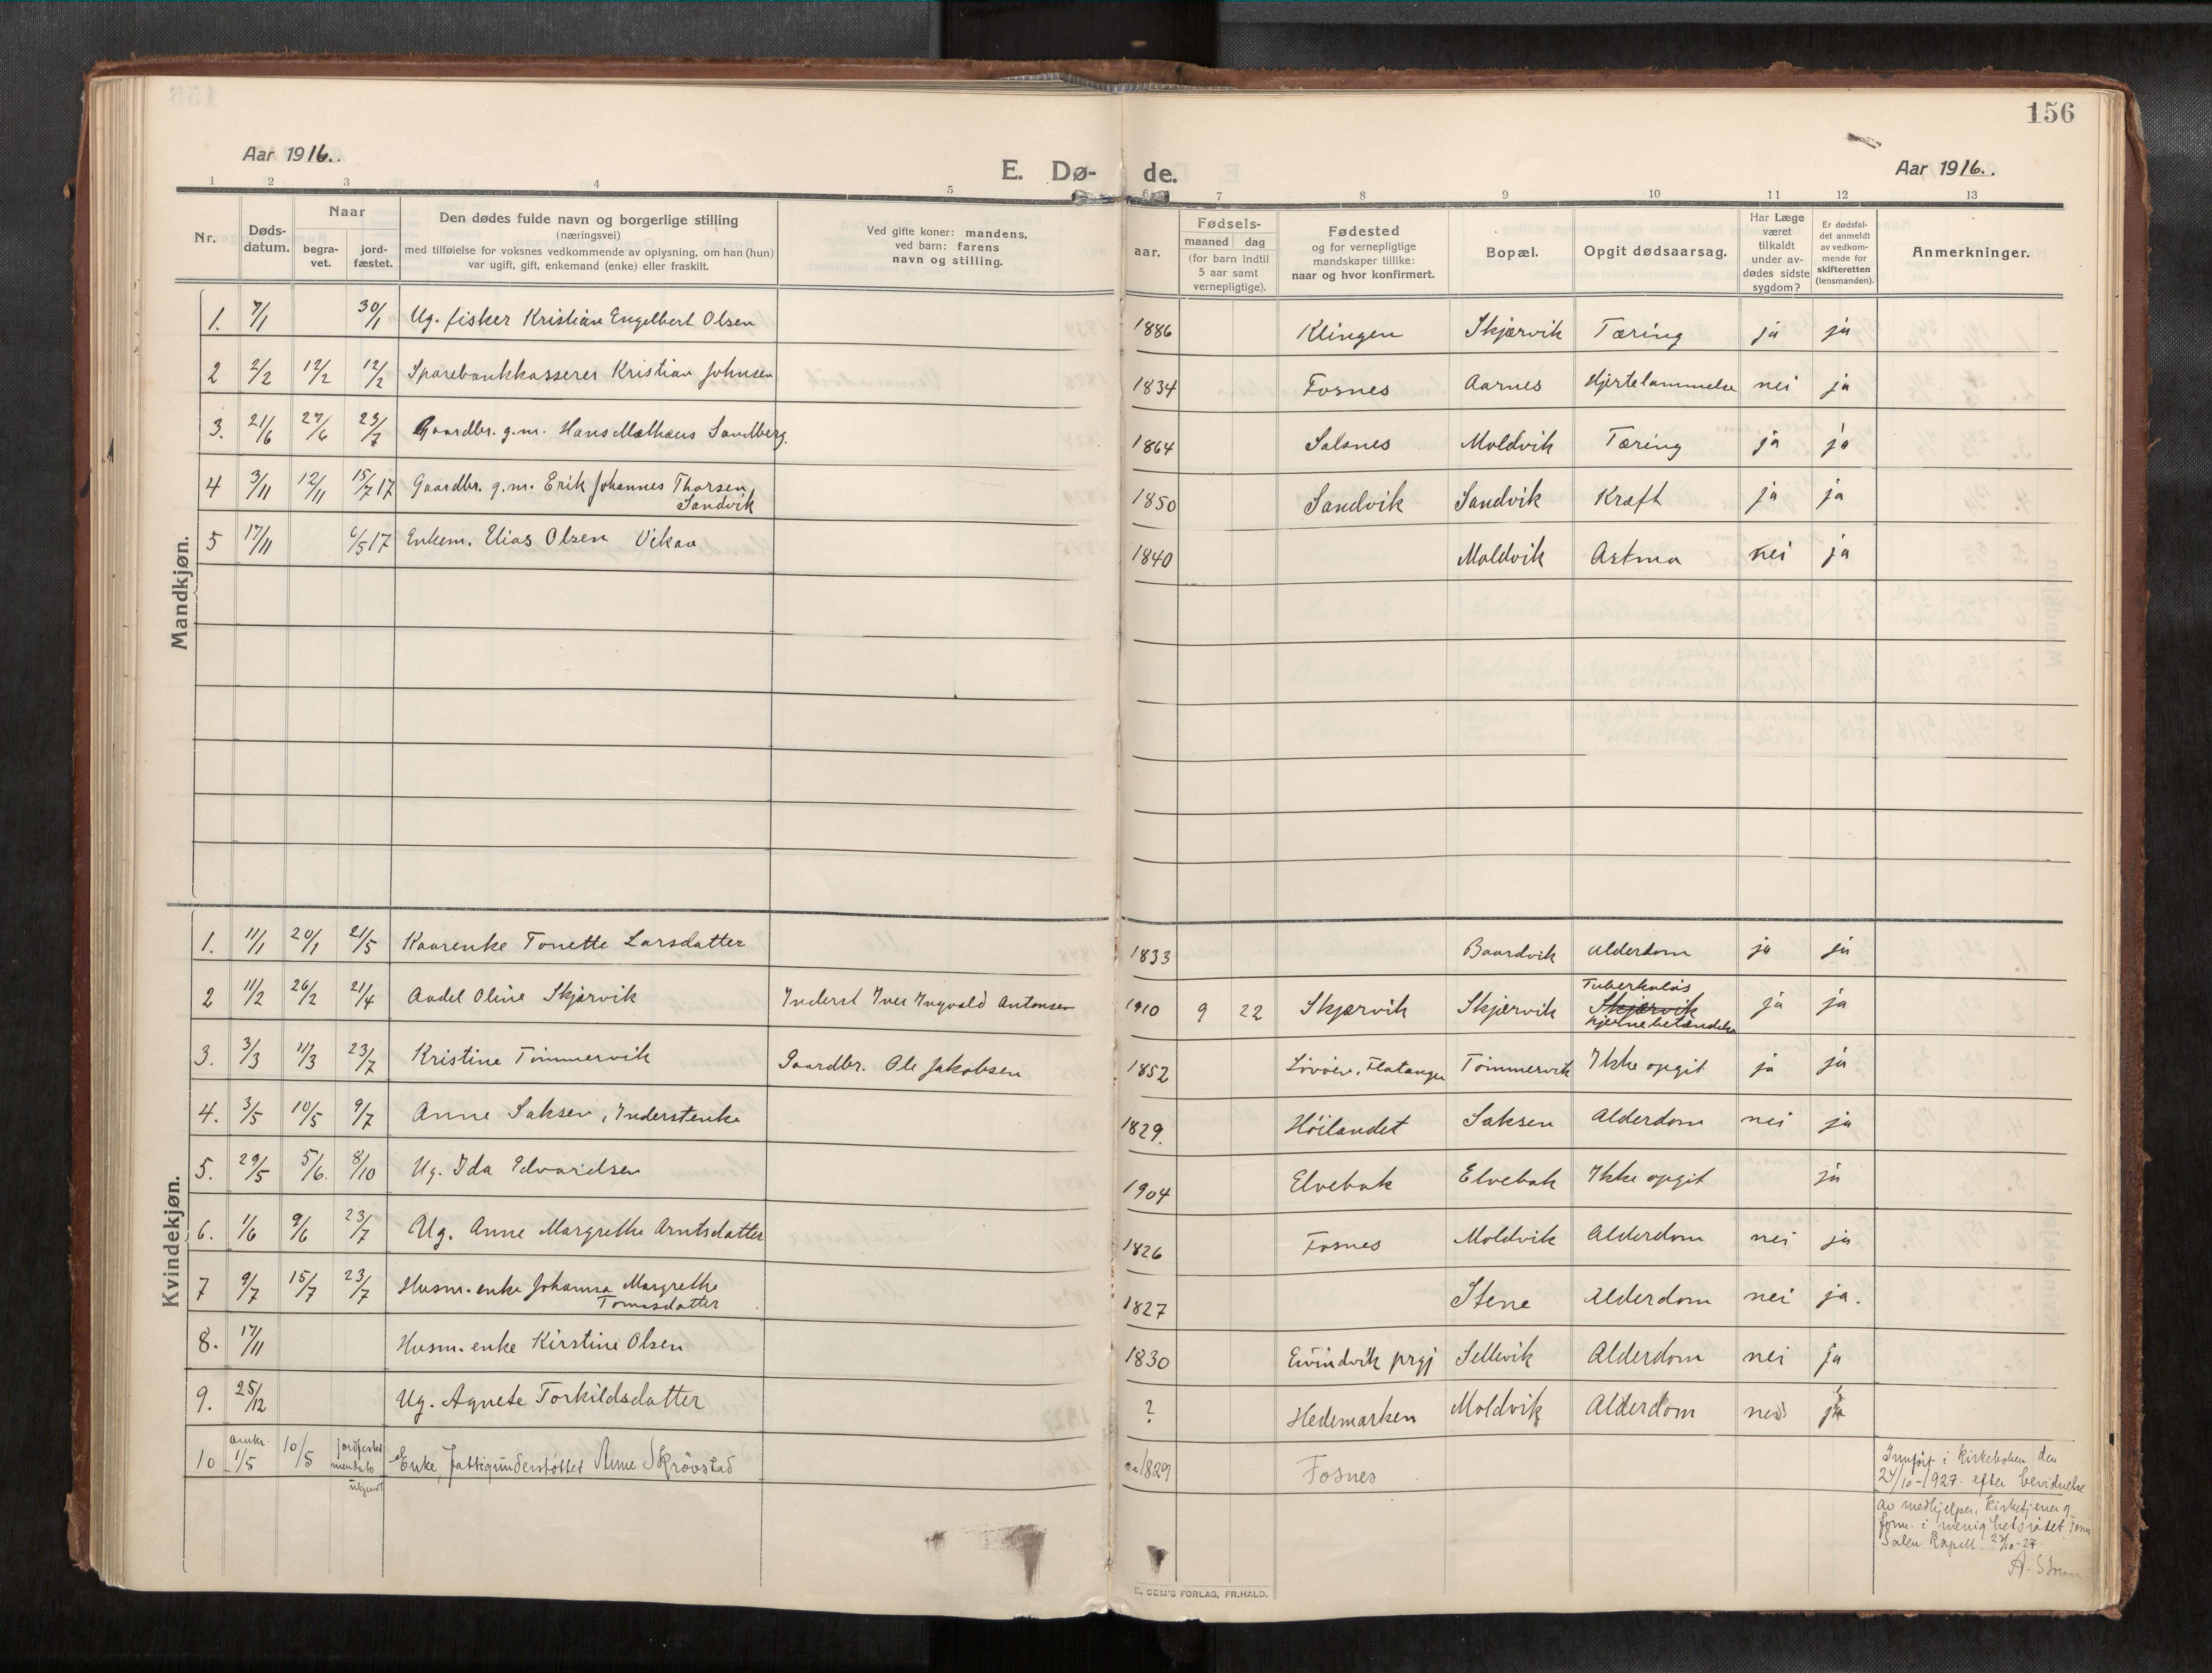 156
Aar 1916.
E. Dø- de.
Aar 1916.
1 2 3 4 5 6 7 8 9 10 11 12 13
Nr.
Døds-
datum.
Naar
begra-
vet.
jord-
fæstet.
Den dødes fulde navn og borgerlige stilling
(næringsvei)
med tilføielse for voksnes vedkommende av oplysning, om han (hun)
var ugift, gift, enkemand (enke) eller fraskilt.
Ved gifte koner: mandens,
ved barn: farens
navn og stilling.
aar.
Fødsels-
maaned dag
(for barn indtil
5 aar samt
vernepligtige).
Fødested
og for vernepligtige
mandskaper tillike:
naar og hvor konfirmert.
Bopæl.
Opgit dødsaarsag.
Har Læge
været
tilkaldt
under av-
dødes sidste
sygdom?
Er dødsfal-
det anmeldt
av vedkom-
mende for
skifteretten
(lensmanden).
Anmerkninger.
Mandkjøn.
1. 7/1 30/1 Ug. fisker Kristian Engelbert Olsen 1886 Klingen Skjærvik Tæring ja ja
2 2/2 12/2 12/2 Sparebankkasserer Kristian Johnsen 1834 Fosnes Aarnes Hjertelammelse nei ja
3. 21/6 27/6 23/7 Gaardbr. g.m. Hans Mathæus Sandberg. 1864 Salsnes Moldvik Tæring ja ja
4 3/11 12/11 15/7 17 Gaardbr. g.m. Erik Johannes Thorsen,
Sandvik 1850 Sandvik Sandvik Kræft ja ja
5 17/11 6/5 17 Enkem. Elias Olsen Vikan 1840 Moldvik Astma nei ja
Kvindekjøn.
1. 11/1 20/1 21/5 Kaarenke Tonette Larsdatter 1833 Baardvik Alderdom ja ja
2 11/2 26/2 21/4 Aadel Oline Skjærvik Inderst Iver Ingvald Antonsen 1910 9 22 Skjærvik Skjærvik Tuberkuløs
Skjærvik ja ja
hjernebetændelse
3. 3/3 11/3 23/7 Kristine Tømmervik Gaardbr. Ole Jakobsen 1852 Flatanger Tømmervik Ikke opgit ja ja
4. 3/5 10/5 9/7 Anne Saksen, Inderstenke 1829. Høilandet Saksen Alderdom nei ja
5. 29/5 5/6. 8/10 Ug. Ida Edvardsen 1904 Elvebak Elvebak Ikke opgit ja
6. 1/6 9/6 23/7 Ug. Anne Margrethe Arntsdatter 1826 Fosnes Moldvik Alderdom nei ja
7 9/7 15/7 23/7 Husm. enke Johanna Margrethe
Tomasdatter 1827 Stene Alderdom nei ja.
8. 17/11 Husm. enke Kirstine Olsen 1830 Evindvik prgj Sellevik Alderdom nei ja
9. 25/12 Ug. Agnete Torkildsdatter ? Hedemarken Moldvik Alderdom nei ja
10 omkr.
1/5 10/5 jordfestet
ukjendt Enke, fattigunderstøttet Anne Skrøvstad ca 1829 Fosnes
Innført i kirkeboken den
24/10-1927 efter bevidnelse
av medhjelper, kirketjener og
form. i menighetsrådet
Salen Kapell 23/10-27.
E. SEM'S FORLAG, FR.HALD.